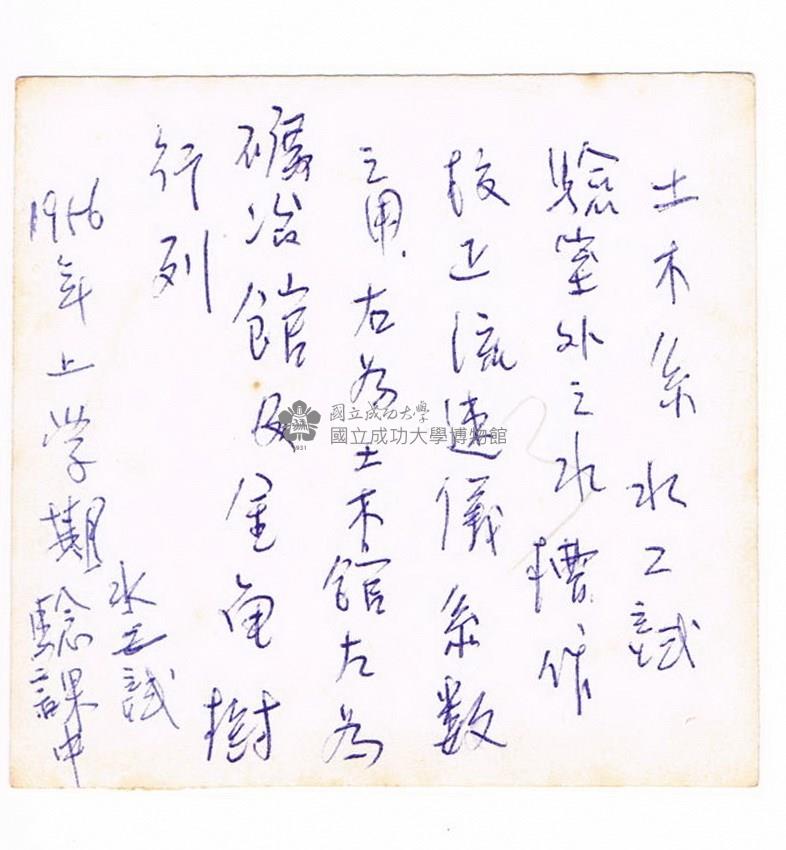 土木系水工試
驗室外之水槽作
校正流速儀系数
之用.右為土木館左為
礦冶館及金龟樹
行列
1956年上学期水工試驗課中
國立成功大學
國立成功大學博物館
1931